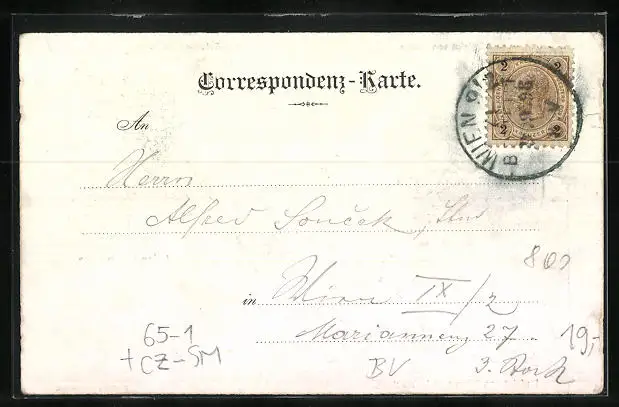 Correspondenz-Karte.
2 2
2 2
WIEN 9/2
An
Herrn
Alfred Souček,
in Wien IX/2
Marianneng 27.
3. Stock
802
65-1
+CZ-SM
BV
19,-